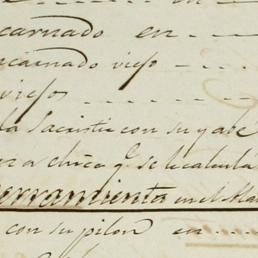 carnado en
ncarnado viejo
viejos
la Sacristia con su yabe
chica q.e se le calcula
erramienta en el
con su pilon en